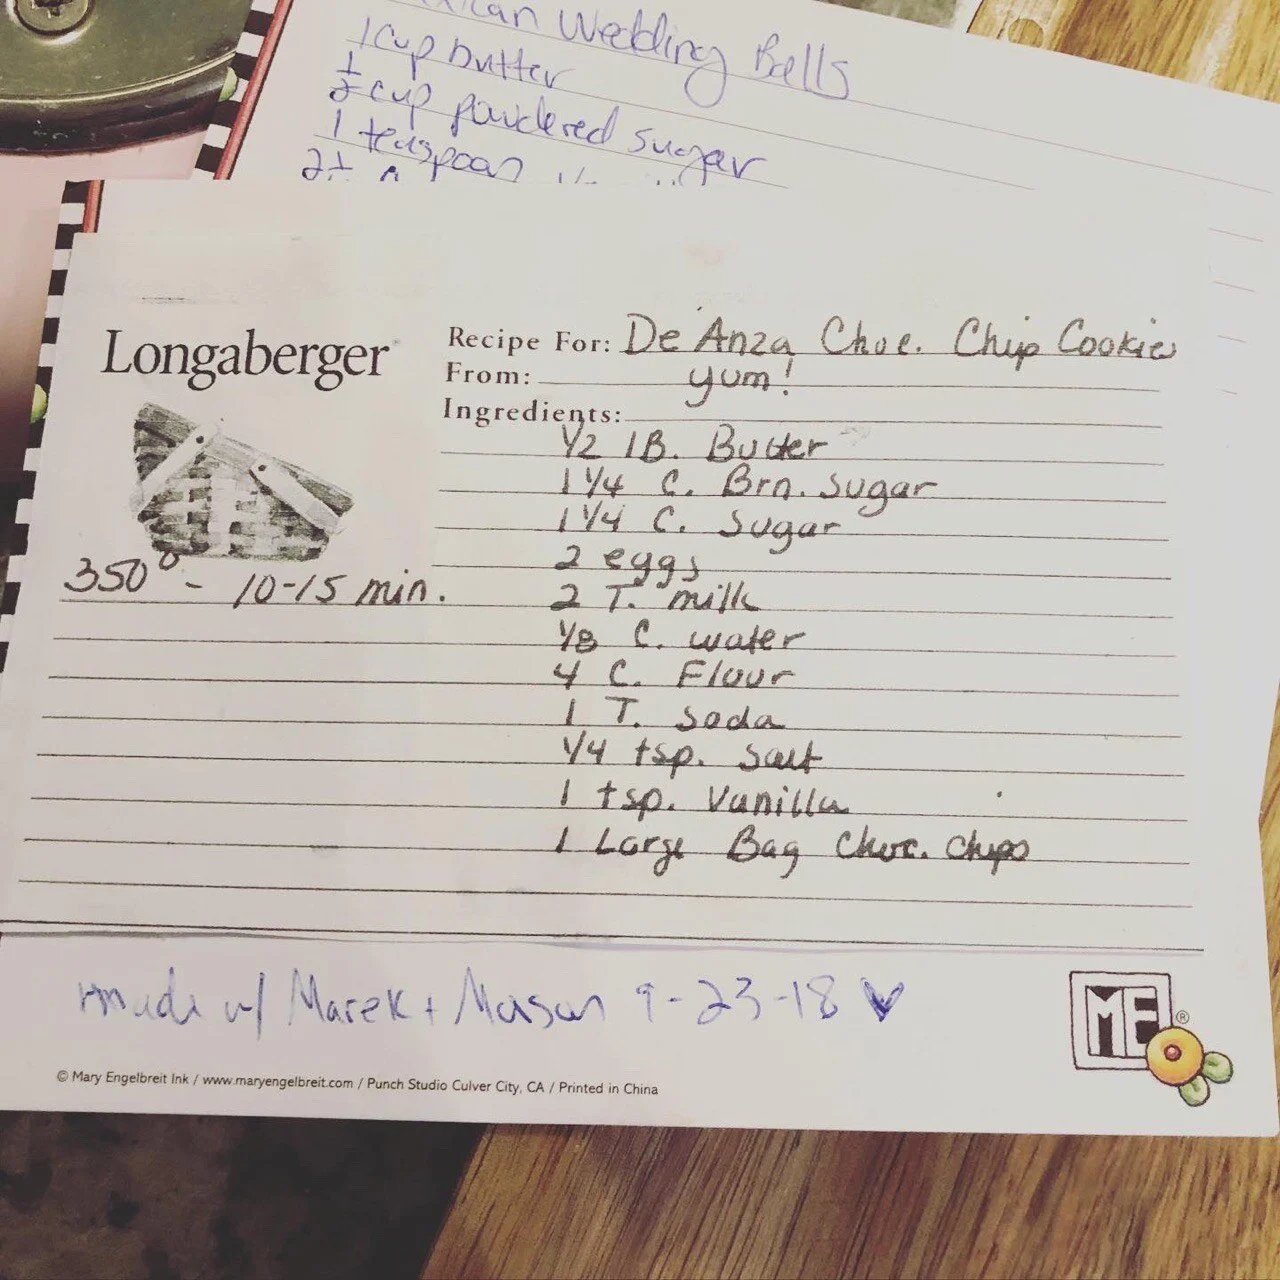 ican Wedding Bells
1 cup butter
1/2 cup powdered sugar
1 teaspoon
2 1/2
Longaberger
Recipe For: De Anza Choc. Chip Cookies
From: yum!
Ingredients:
1/2 lB. Butter
1 1/4 C. Brn. Sugar
1 1/4 C. Sugar
2 eggs
350° - 10-15 min.
2 T. milk
1/8 C. water
4 C. Flour
1 T. Soda
1/4 tsp. Salt
1 tsp. Vanilla
1 Large Bag Choc. Chips
made w/ Marek + Mason 9-23-18
ME ®
© Mary Engelbreit Ink / www.maryengelbreit.com / Punch Studio Culver City, CA / Printed in China